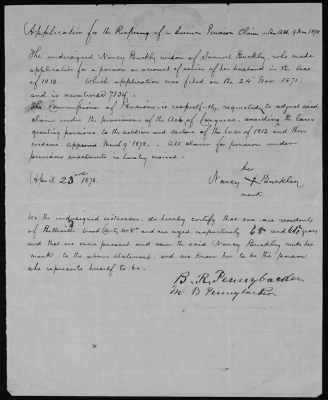 Application for the Refiling of a Survivor Pension Claim - Under Act 9 Mar 1878
The undersigned Nancy Buckley widow of Samuel Buckley, who made
application for a pension on account of service of her husband in the war
of 1812. Which application was filed on the 24th Nov. 1871.
and is numbered 7334.
The Commissioner of Pensions, is respectfully requested to adjust said
claim under the provisions of the Act of Congress, amending the laws
granting pensions to the soldiers and sailors of the War of 1812 and their
widows approved March 9th 1878. All claim for pension under
previous enactments is hereby waived.
her
April 23rd 1878. Nancy X Buckley
mark
We the undersigned witnesses do hereby certify that we are residents
of Belleville Wood County W.Va and are aged respectively 68 and
and that we were present and saw the said Nancy Buckley make her
mark to the above statement, and we know her to be the person
she represents herself to be.
B. R. Pennybacker
M B Pennybacker